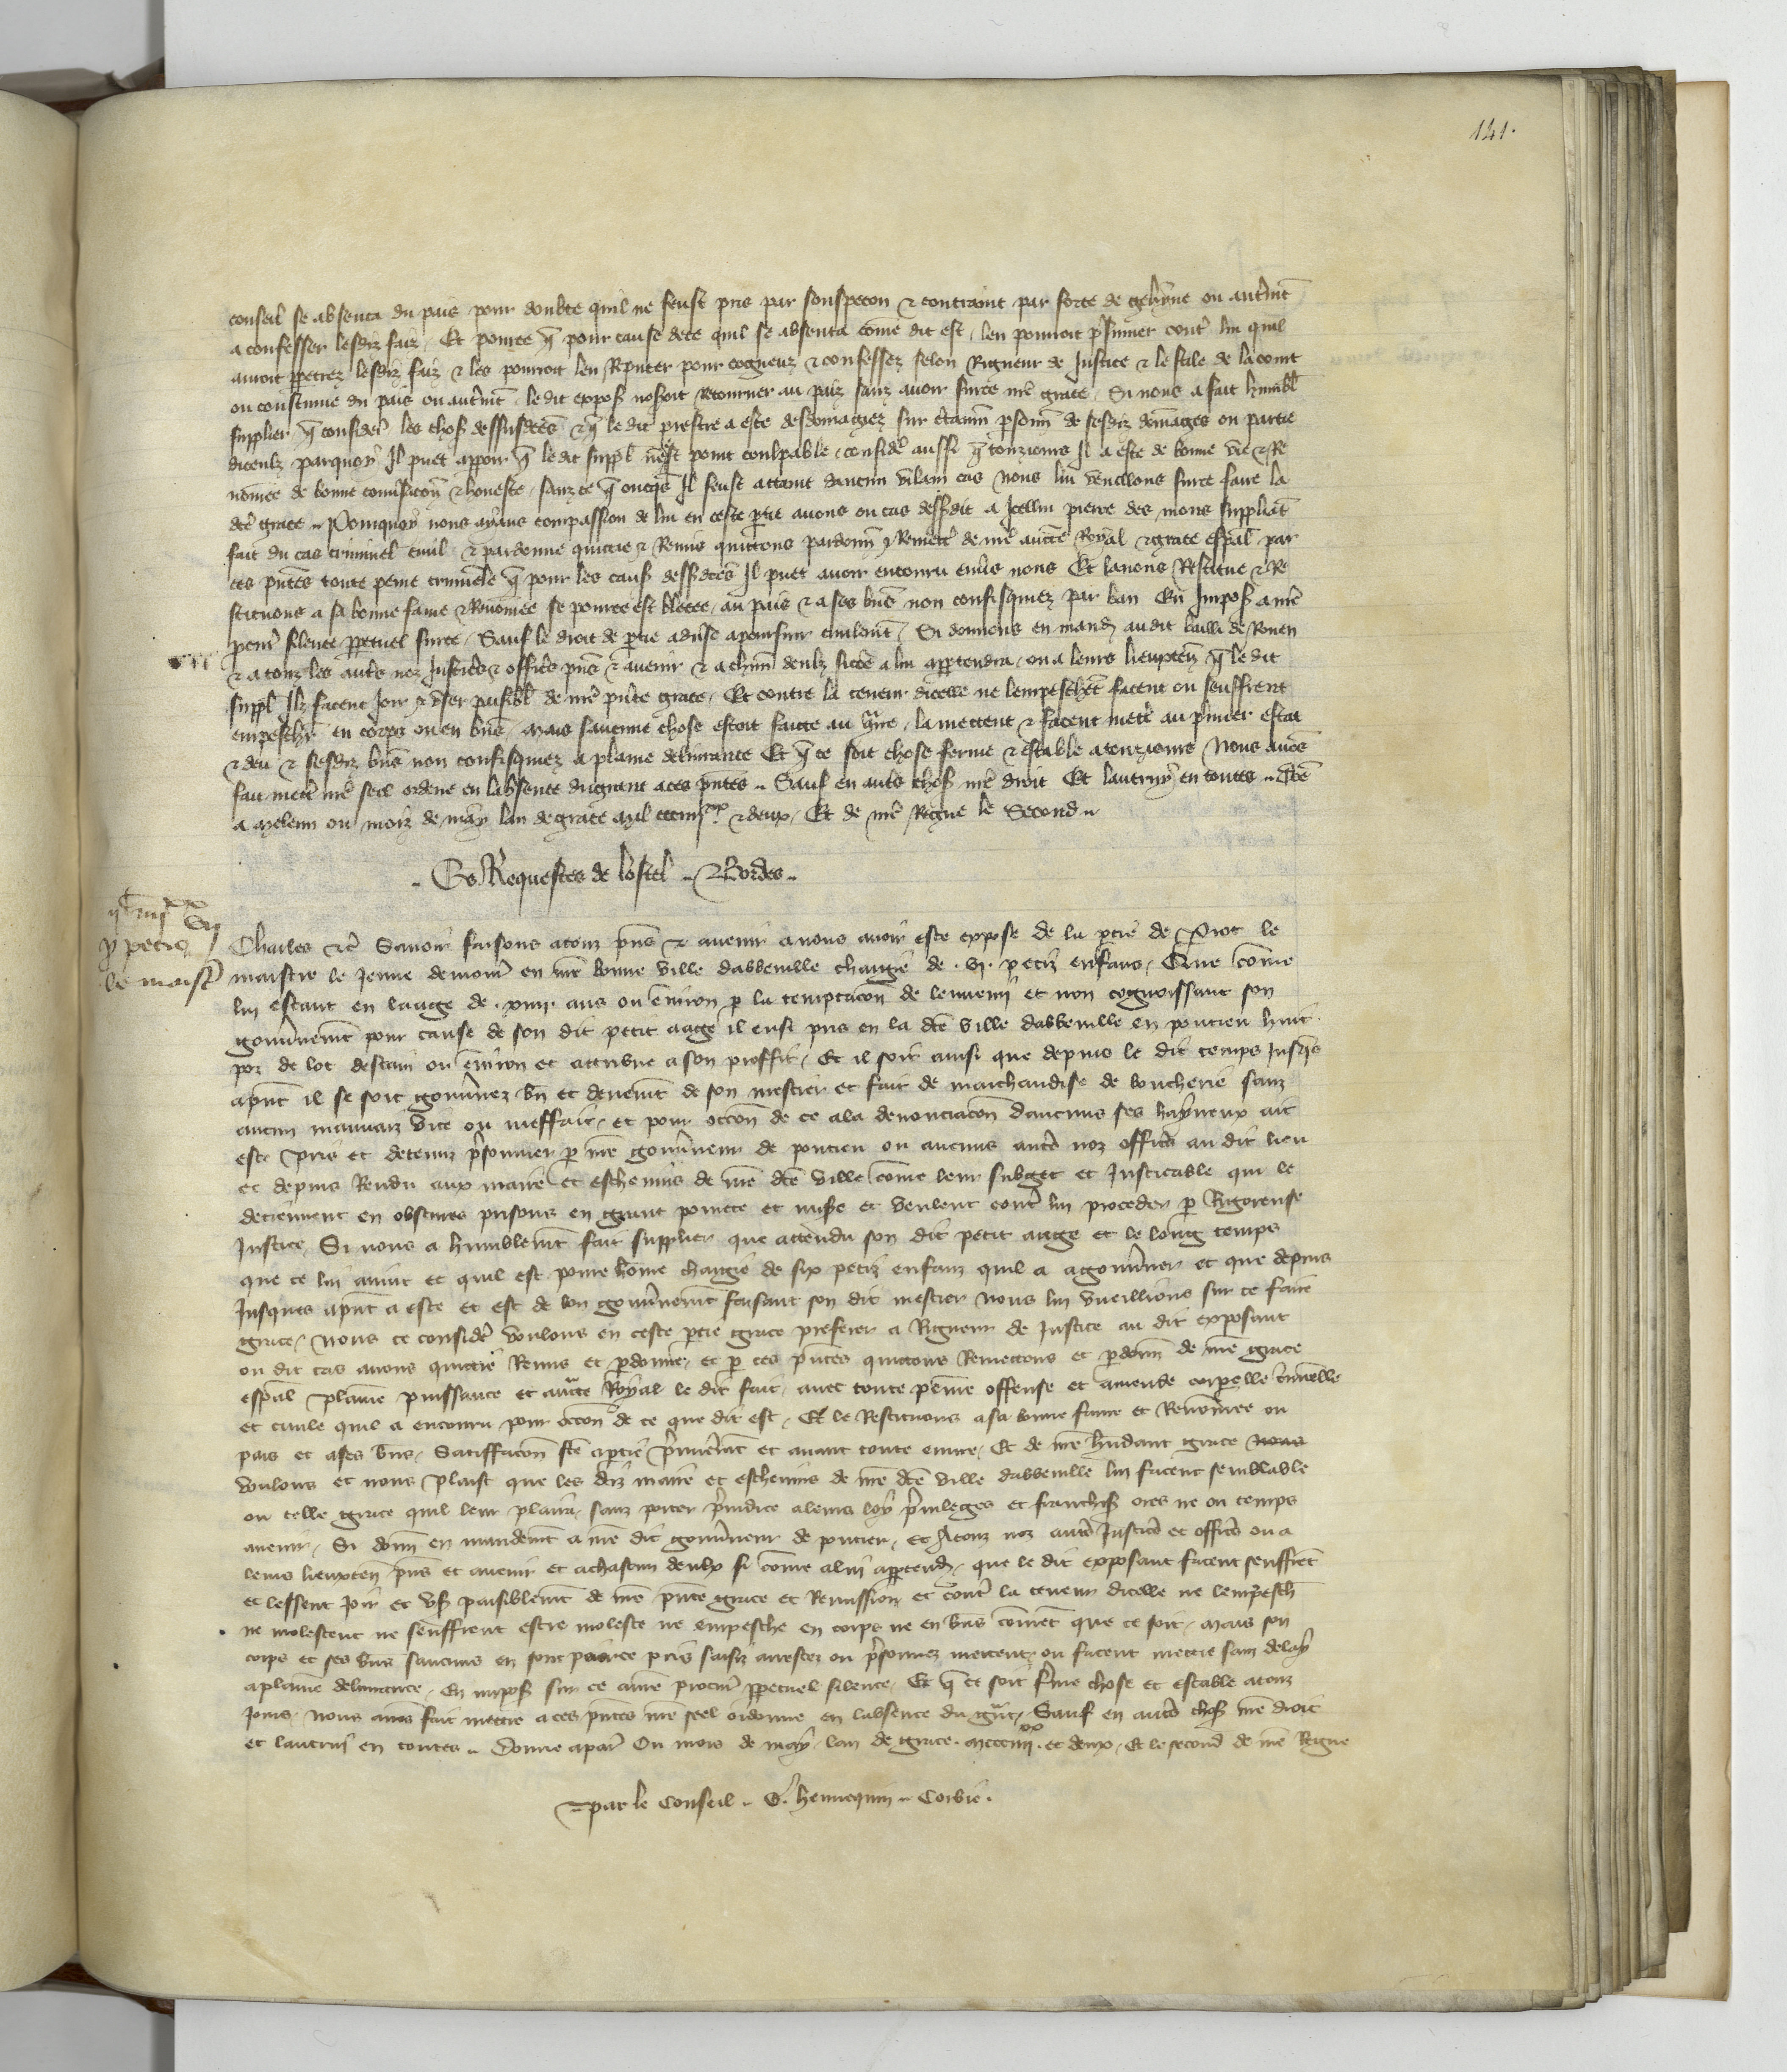 141.
conseil se absenta du pais pour doubte quil ne feust pris par souspecon & contraint par force de gehyne ou autrmt
a confesser lesdiz faiz, Et pource q pour cause dece quil se absenta come dit est, len pourroit psumer contr lui quil
avoit ppetrez lesdiz faiz & les pourroit len Reputer pour cogneuz & confessez selon Rigueur de Justice & le stile de lacourt
ou coustume du pais ou autrmt le dit expos noseroit Retourner au paiz sanz avoir surce nre grace, Si nous a fait humbl
supplier q consider les chos dessusdces & q le dit prestre a este desdomagiez sur ctainn psonn de sesdiz domages ou partie
diceulz parquoy Il puet apparoir q le dit suppl nest point coulpable, consider aussi q touziours Il a este de bonne vie & Re
nomee de bonne conusacon & honeste, sanz ce q oncqs Il feust attaint daucun vilain cas nous lui vueillons surce faire la
dce grace, Pourquoy nous ayans compassion de lui en ceste ptie avons ou cas dessdit a Icellui pierre des mons suppliat
fait du cas criminel civil & pardonne quictie & Remis quittons pardonn & Remett de nre auctte Royal & grace espal par
ces pntes toute peine criminele q pour les caus dessdces Il puet avoir encouru envs nous Et lavons Restitue & Re
stituons a sa bonne fame & Renomee se pource est blecee, au pais & a ses bns non confisquez par ban En Impos a nre
pcur silence ppetuel surce, Sauf le droit de ptie adverse a poursuir civilemt, Si donnons en mand audit bailli de Rouen
& a touz les autrs noz Justicrs & officrs pns & avenir & a chun deulz sicoe a lui apptendra, ou a leurs lieuxten q le dit
suppl Ilz facent Joir & user paisibl de nre pnte grace, Et contre la teneur dicelle ne lempeschet facent ou seuffrent
empeschr en corps ou en bns, Mais saucune chose estoit faicte au grire, la mettent & facent mettr au primer estat
& deu & sesdiz bns non confisquez a plaine delivrance Et q ce soit chose ferme & estable a touziours Nous avons
fait mettr nre seel ordene en labsence dugrant a ces pntes, Sauf en autrs chos nre droit Et lautruy en toutes, Donne
a Meleun ou moiz de May lan de grace Mil ccciiiixx & deux, Et de nre Regne le Second
Es Requestes de lostel, Bordes
vii
p petiz
le maistr
Charles &c Savoir faisons atouz pns & avenir a nous avoir este expose de la ptie de Piot le
maistre le Jeune demour en nre bonne ville dabbeville chargie de vi petiz enfans, Que come
lui estant en laage de xiiii ans ou environ p la temptacon de lennemi et non cognoissant son
gouvnemt pour cause de son dit petit aage il eust pris en la dce ville dabbeville en pontieu huit
poz de lot destain ou environ et attribue a son proffit, Et il soit ainsi que depuis le dit temps Jusqs
apnt il se soit gouvnez bn et deuemt de son mestier et fait de marchandise de boucherie sanz
aucun mauvaiz vice ou meffait, et pour occon de ce ala denonciacon daucuns ses hayneux ait
este pris et detenuz prisonnier p nre gouvneur de pontieu ou aucuns autrs noz officrs au dit lieu
et depuis Rendu aux maire et eschevins de nre dce ville come leur subget et Justicable qui le
detiennent en obscures prisons en grant povrete et misere et veulent contr lui proceder p Rigoreuse
Justice, Si nous a humblemt fait supplier que attendu son dit petit aage et le long temps
que ce lui avint et quil est povre home chargie de six petiz enfanz quil a agouvner et que depuis
Jusques apnt a este et est de bon gouvnemt faisant son dit mestier nous lui vueillions sur ce faire
grace, Nous ce consider voulons en ceste ptie grace preferer a Rigueur de Justice au dit exposant
ou dit cas avons quictie Remis et pdonne, et p ces pntes quittons Remettons et pdonn de nre grace
espal plaine puissance et auctte Royal le dit fait, avec toute peine offense et amende corpelle crinelle
et civile quil a encouru pour occon de ce que dit est, Et le Restituons a sa bonne fame et Renomee ou
pais et ases bns, Satiffacon fce aptie primieremt et avant toute euvre, Et de nre habundant grace nous
voulons et nous plaist que les diz maire et eschevins de nre dce ville dabbeville lui facent semblable
ou telle grace quil leur plaira, sanz porter preiudice aleurs loy privileges et franchis ores ne ou temps
avenir, Si donn en mandemt a nre dit gouvneur de pontieu, et Atouz noz autrs Justicrs et officrs ou a
leurs lieuxten pns et avenir et achascun deulx si come alui apptend, que le dit exposant facent seuffret
et lessent Joir et us paisiblemt de nre pnte grace et Remission et contr la teneur dicelle ne lempesch
ne molestent ne seuffrent estre moleste ne empesche en corps ne en bns coment que ce soit, Mais son
corps et ses bns saucuns en sont pource pris saisiz arrestez ou prisonnez mettent ou facent mettre sanz delay
aplaine delivrance, En impos sur ce anre procur ppetuel silence, Et q ce soit ferme chose et estable atouz
Jours, Nous avons fait mettre aces pntes nre seel ordonne en labsence du grant, Sauf en autrs chos nre droit
et lautrui en toutes, Donne apar Ou mois de May, lan de grace mccciiiixx et deux, Et le second de nre Regne
par le Conseil, G. hennequin, Corbie.